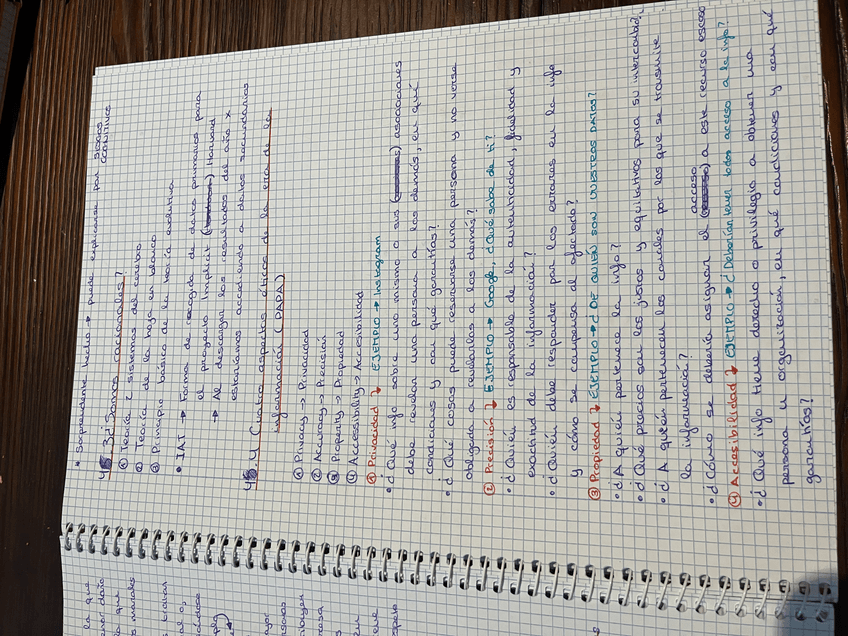 • Sorprendente hecho → puede explicarse por SESGOS COGNITIVOS
4.3 ¿Somos racionales?
① Teoría 2 sistemas del cerebro
② Teoría de la hoja en blanco
③ Principio básico de la teoría evolutiva
• IAT → Forma de recogida de datos primarios para
el proyecto Implicit Harvard
→ Al descargar los resultados del año x
estaríamos accediendo a datos secundarios
4.4 Cuatro aspectos éticos de la era de la
información (PAPA)
① Privacy → Privacidad
② Accuracy → Precisión
③ Property → Propiedad
④ Accessibility → Accesibilidad
① Privacidad ↴ EJEMPLO → Instagram
• ¿Qué info sobre uno mismo o sus asociaciones
debe revelar una persona a los demás, en qué
condiciones y con qué garantías?
• ¿Qué cosas puede reservarse una persona y no verse
obligada a revelarlas a los demás?
② Precisión ↴ EJEMPLO → Google, ¿Qué sabe de ti?
• ¿Quién es responsable de la autenticidad, fidelidad y
exactitud de la información?
• ¿Quién debe responder por los errores en la info
y cómo se compensa al afectado?
③ Propiedad ↴ EJEMPLO → ¿DE QUIÉN SON NUESTROS DATOS?
• ¿A quién pertenece la info?
• ¿Qué precios son los justos y equitativos para su intercambio?
• ¿A quién pertenecen los canales por los que se transmite
la información?
• ¿Cómo se debería asignar el acceso a este recurso escaso
④ Accesibilidad ↴ EJEMPLO → ¿Deberían tener todos acceso a la info?
• ¿Qué info tiene derecho o privilegio a obtener una
persona u organización, en qué condiciones y con qué
garantías?
la que
enor daño
a que
s morales